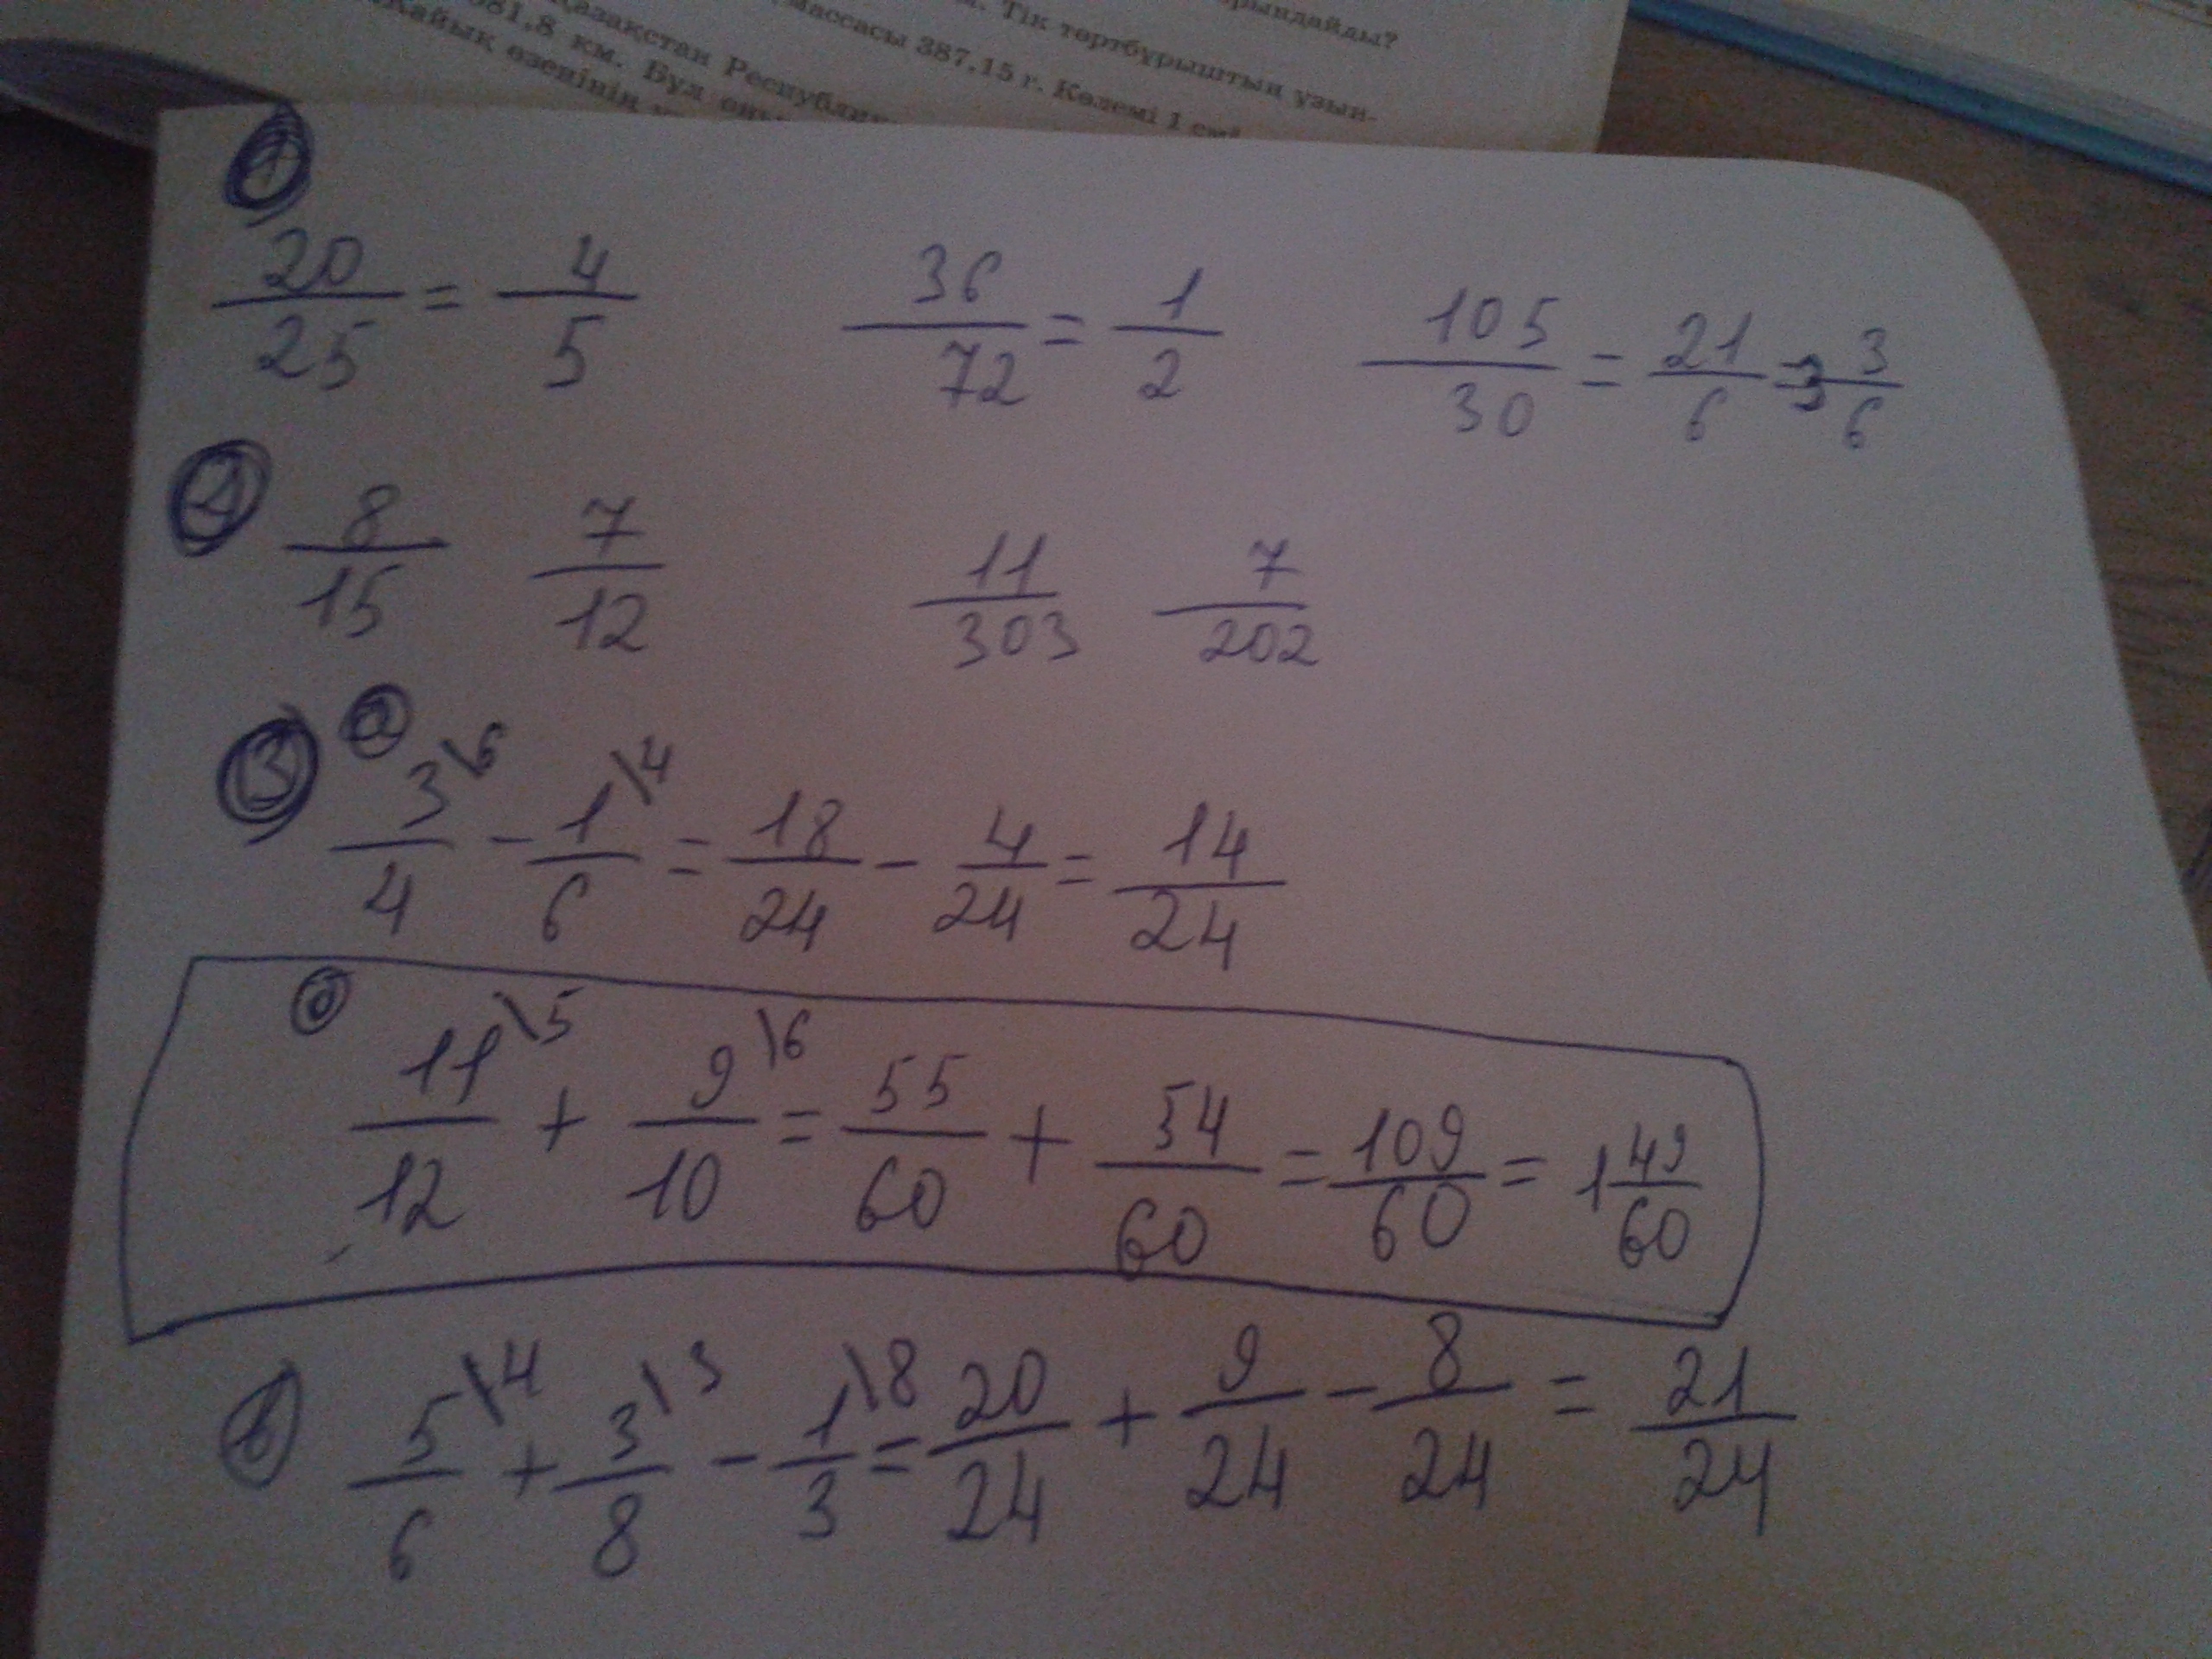 орындайды?
Тік төртбұрыштың ұзын-
массасы 387,15 г. Көлемі 1 см³
Қазақстан Республик
981,8 км. Бұл
Жайық өзенінің
1
20/25 = 4/5 36/72 = 1/2 105/30 = 21/6 = 3 3/6
2 8/15 7/12 11/303 7/202
3 a
3\6/4 - 1\4/6 = 18/24 - 4/24 = 14/24
б
11\5/12 + 9\6/10 = 55/60 + 54/60 = 109/60 = 1 49/60
в 5\4/6 + 3\3/8 - 1\8/3 = 20/24 + 9/24 - 8/24 = 21/24